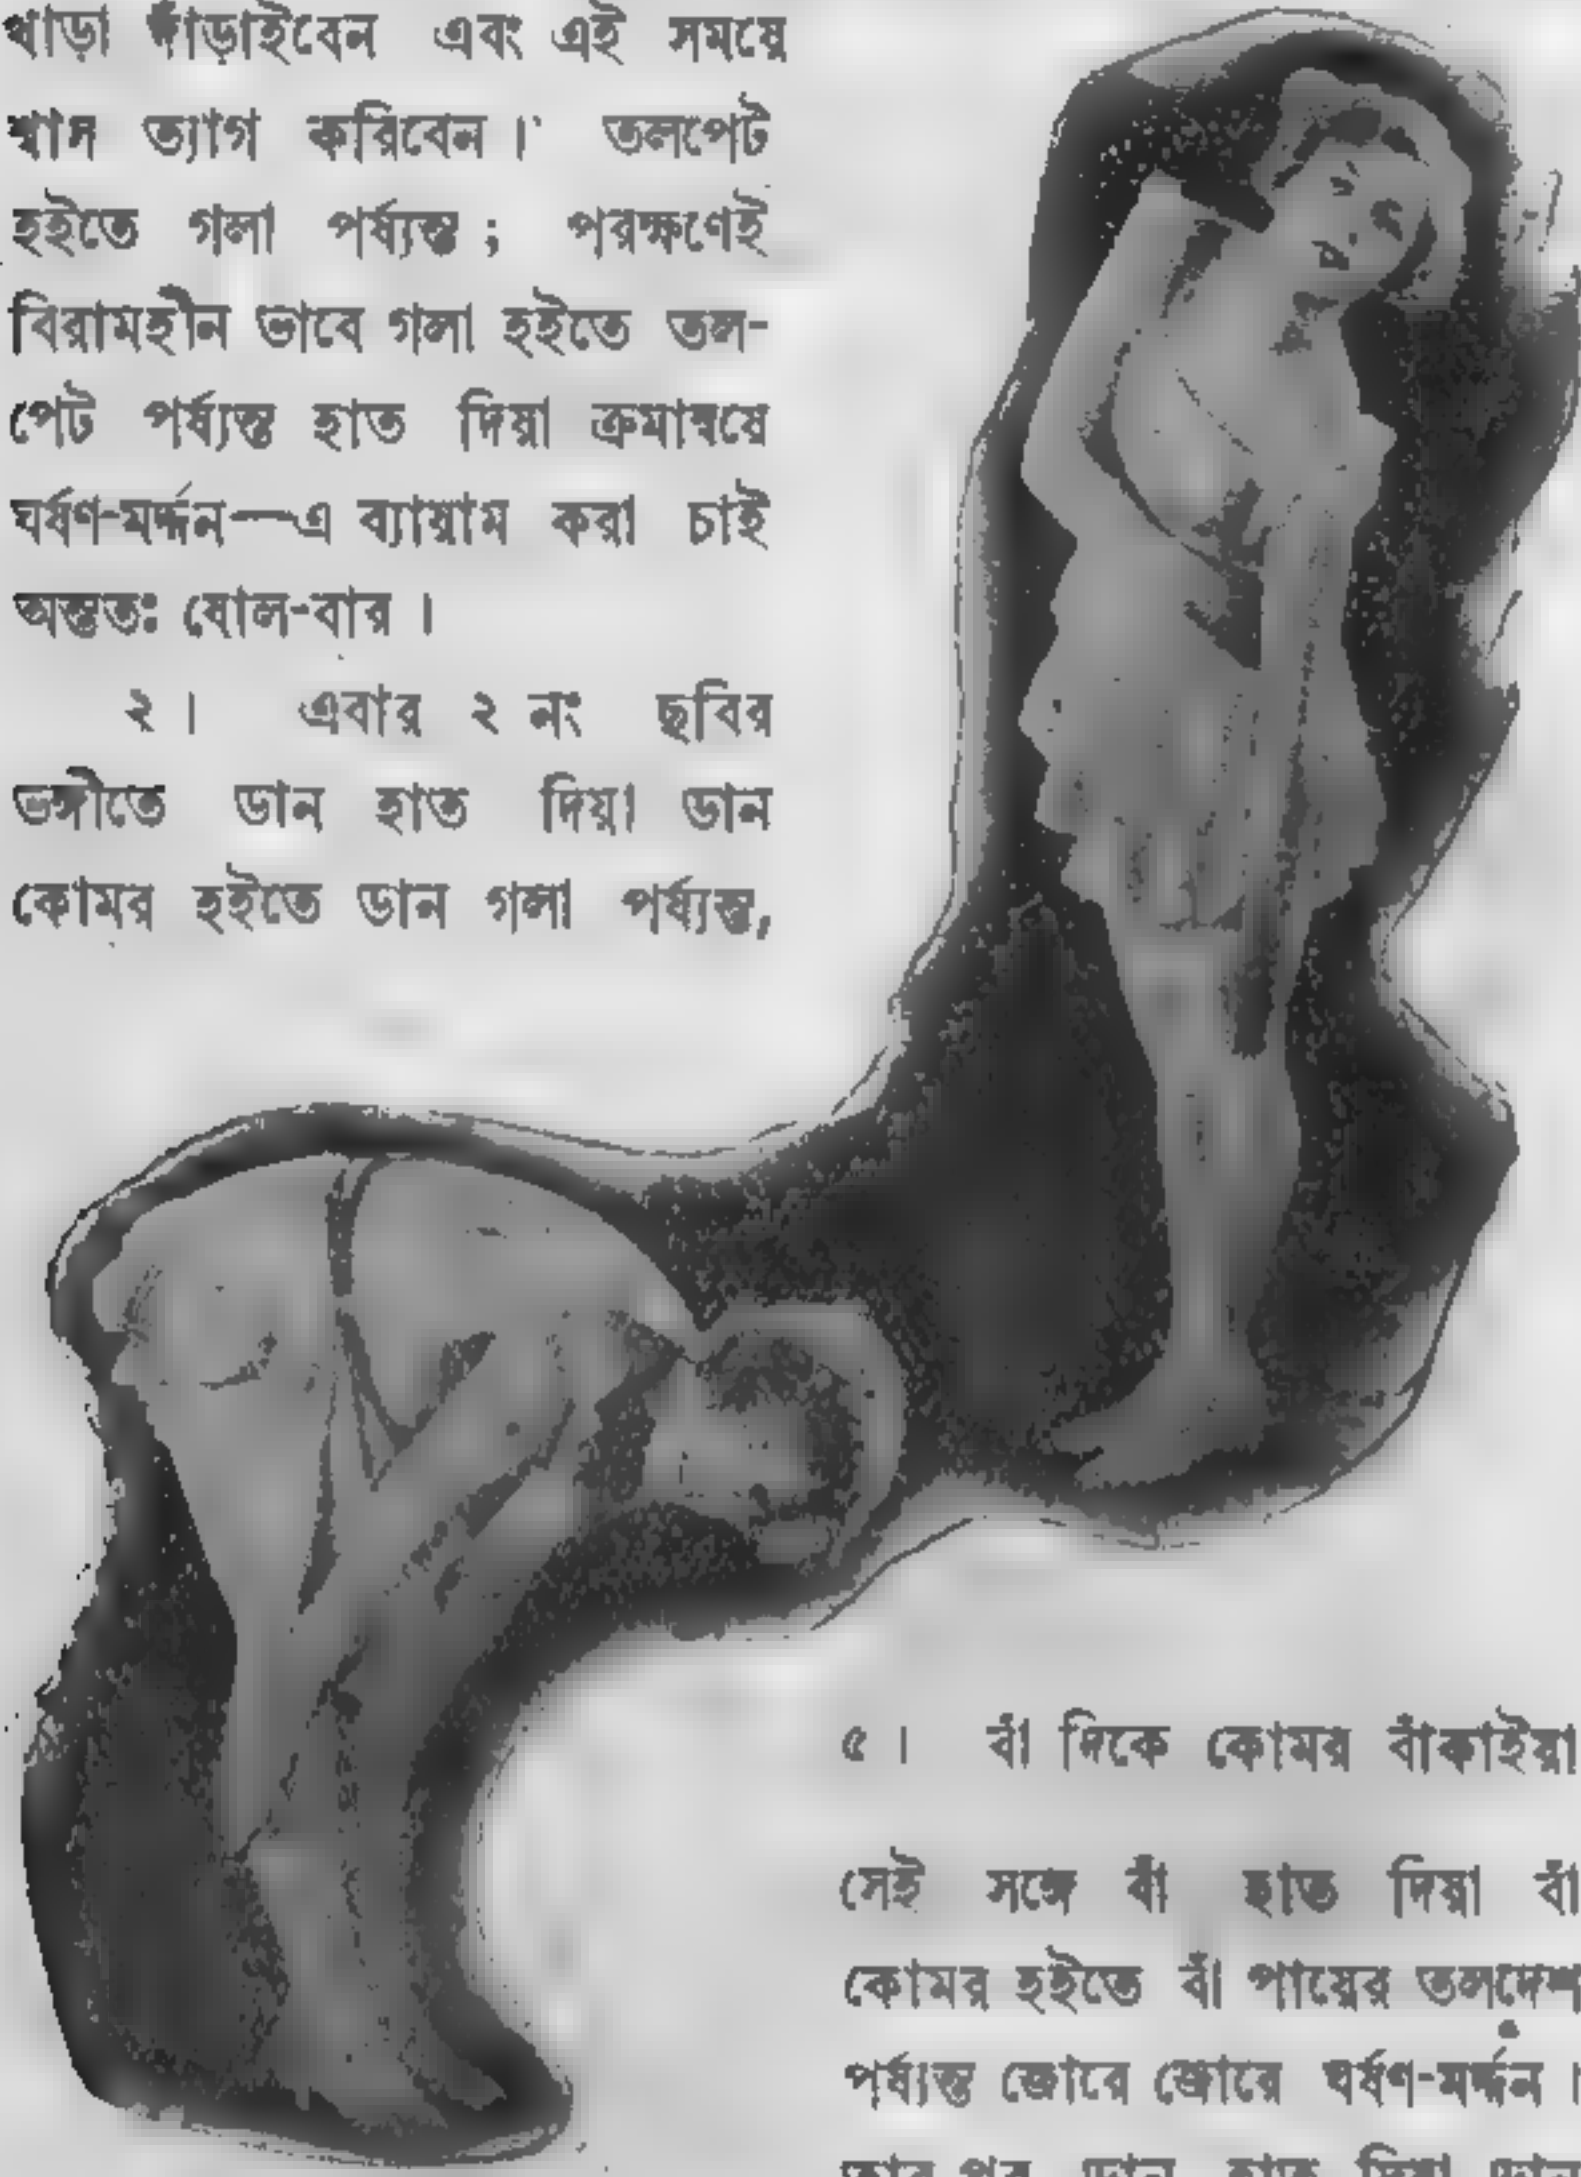 খাড়া দাঁড়াইবেন এবং এই সময়ে
শ্বাস ত্যাগ করিবেন। তলপেট
হইতে গলা পর্য্যন্ত; পরক্ষণেই
বিরামহীন ভাবে গলা হইতে তল-
পেট পর্য্যন্ত হাত দিয়া ক্রমান্বয়ে
ঘর্ষণ-মর্দ্দন—এ ব্যায়াম করা চাই
অন্ততঃ ষোল-বার।
২। এবার ২ নং ছবির
ভঙ্গীতে ডান হাত দিয়া ডান
কোমর হইতে ডান গলা পর্য্যন্ত,
৫। বাঁ দিকে কোমর বাঁকাইয়া
সেই সঙ্গে বাঁ হাত দিয়া বাঁ
কোমর হইতে বাঁ পায়ের তলদেশ
পর্য্যন্ত জোরে জোরে ঘর্ষণ-মর্দ্দন।